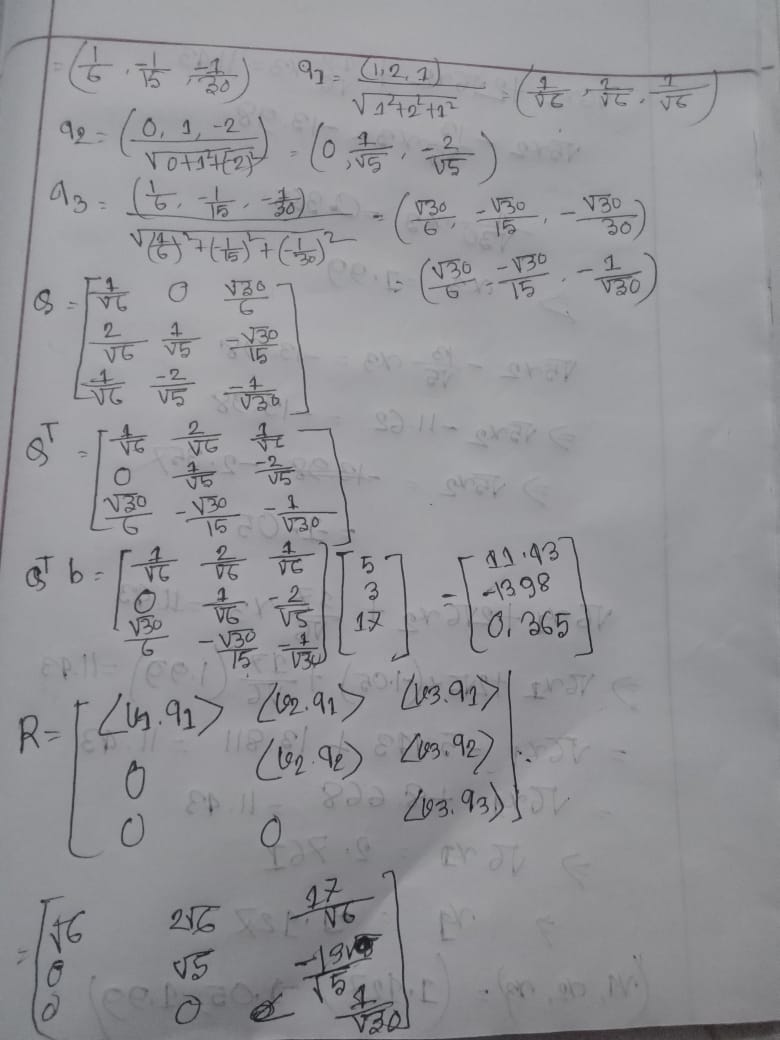 = (1/6, -1/15, -1/30) q1 = (1, 2, 1)/√1²+2²+1² = (1/√6, 2/√6, 1/√6)
q2 = (0, 1, -2)/√0+1²+(-2)² = (0, 1/√5, -2/√5)
q3 = (1/6, -1/15, -1/30)/√(1/6)²+(-1/15)²+(-1/30)² = (√30/6, -√30/15, -√30/30)
= (√30/6, -√30/15, -1/√30)
Q = [1/√6 0 √30/6
2/√6 1/√5 -√30/15
1/√6 -2/√5 -1/√30]
Qᵀ = [1/√6 2/√6 1/√6
0 1/√5 -2/√5
√30/6 -√30/15 -1/√30]
Qᵀ b = [1/√6 2/√6 1/√6] [5] = [11.43]
[0 1/√6 -2/√5] [3] [-1398]
[√30/6 -√30/15 -1/√30] [17] [0.365]
R = [⟨v1.q1⟩ ⟨v2.q1⟩ ⟨v3.q1⟩
0 ⟨v2.q2⟩ ⟨v3.q2⟩
0 0 ⟨v3.q3⟩]
= [√6 2√6 17/√6
0 √5 /√5
0 0 1/√30]